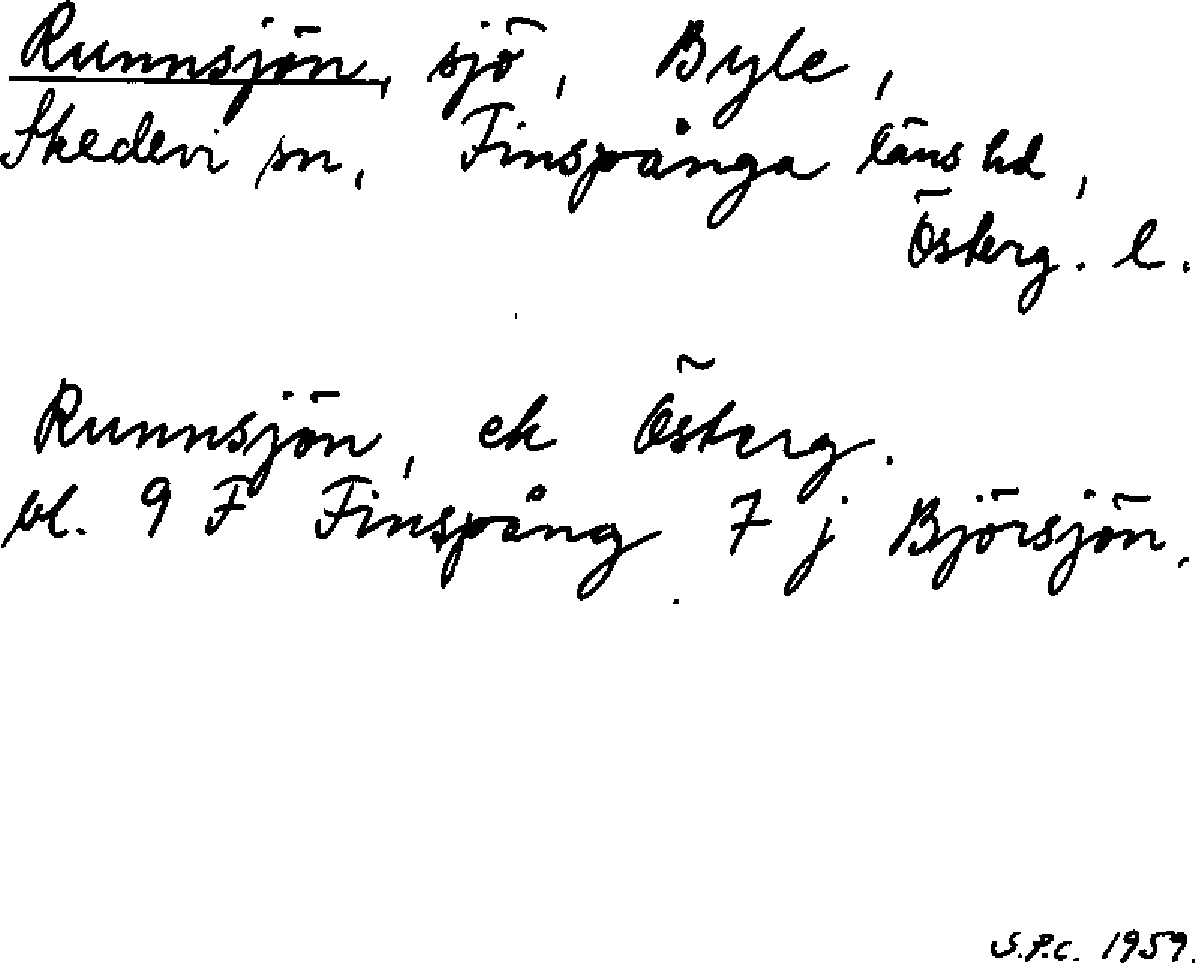 Runnsjön, sjö, Byle,
Skedevi sn, Finspånga läns hd,
Österg. l.
Runnsjön, ek Österg.
bl. 9 F Finspång 7 j Björsjön.
S.P.C. 1959.